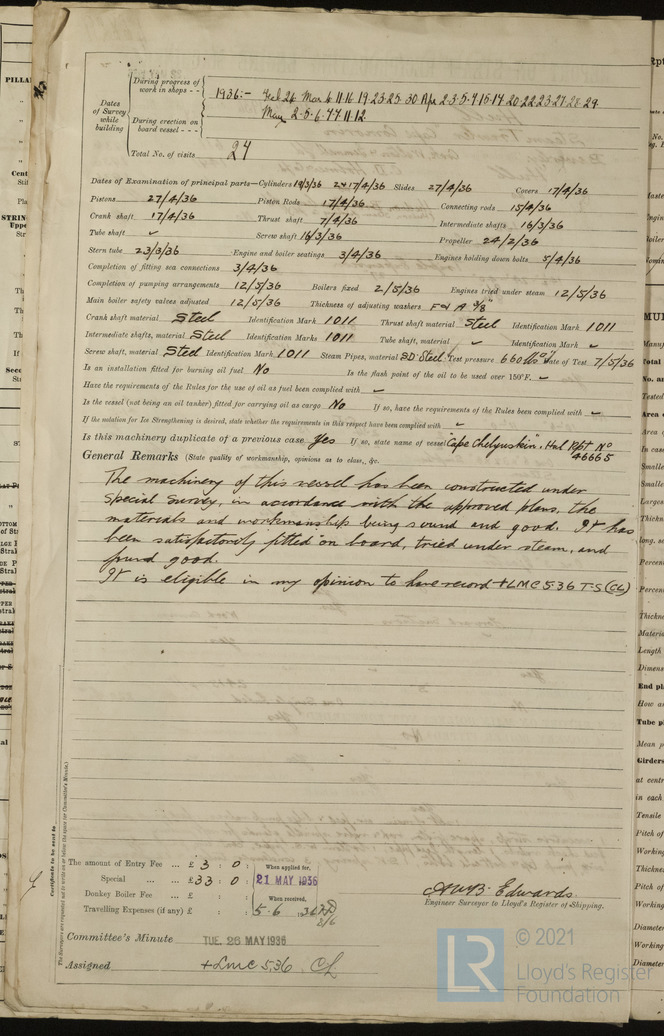 Dates of Survey while building
During progress of work in shops - -
1936:- Feb 24 Mar 6 11 16 19 23 25 30 Apr 2 3 5 7 15 17 20 22 23 27 28 29
During erection on board vessel - - -
May 2 5 6 7 11 12
Total No. of visits 24
Dates of Examination of principal parts—Cylinders 19/3/36 2+17/4/36 Slides 27/4/36 Covers 17/4/36
Pistons 27/4/36 Piston Rods 17/4/36 Connecting rods 15/4/36
Crank shaft 17/4/36 Thrust shaft 7/4/36 Intermediate shafts 16/3/36
Tube shaft ✓ Screw shaft 16/3/36 Propeller 24/2/36
Stern tube 23/3/36 Engine and boiler seatings 3/4/36 Engines holding down bolts 5/4/36
Completion of fitting sea connections 3/4/36
Completion of pumping arrangements 12/5/36 Boilers fixed 2/5/36 Engines tried under steam 12/5/36
Main boiler safety valves adjusted 12/5/36 Thickness of adjusting washers F & A 3/8"
Crank shaft material Steel Identification Mark 1011 Thrust shaft material Steel Identification Mark 1011
Intermediate shafts, material Steel Identification Marks 1011 Tube shaft, material ✓ Identification Mark ✓
Screw shaft, material Steel Identification Mark 1011 Steam Pipes, material SD Steel Test pressure 660 lbs □" Date of Test 7/5/36
Is an installation fitted for burning oil fuel No Is the flash point of the oil to be used over 150°F. ✓
Have the requirements of the Rules for the use of oil as fuel been complied with ✓
Is the vessel (not being an oil tanker) fitted for carrying oil as cargo No If so, have the requirements of the Rules been complied with ✓
If the notation for Ice Strengthening is desired, state whether the requirements in this respect have been complied with ✓
Is this machinery duplicate of a previous case Yes If so, state name of vessel "Cape Chelyuskin". Hul Rpt No 46665
General Remarks (State quality of workmanship, opinions as to class, &c.
The machinery of this vessel has been constructed under
Special Survey, in accordance with the approved plans, the
materials and workmanship being sound and good. It has
been satisfactorily fitted on board, tried under steam, and
found good.
It is eligible in my opinion to have record +LMC 5.36 T-S (CL)
The amount of Entry Fee ... £ 3 : 0 :
Special ... ... £ 33 : 0 :
Donkey Boiler Fee ... £ : :
Travelling Expenses (if any) £ : :
When applied for,
21 MAY 1936
When received,
5.6.36
Certificate to be sent to
(The Surveyors are requested not to write on or below the space for Committee's Minute.)
Edwards
Engineer Surveyor to Lloyd's Register of Shipping.
Committee's Minute TUE. 26 MAY 1936
Assigned +LMC 5.36 CL
LR
© 2021
Lloyd's Register
Foundation